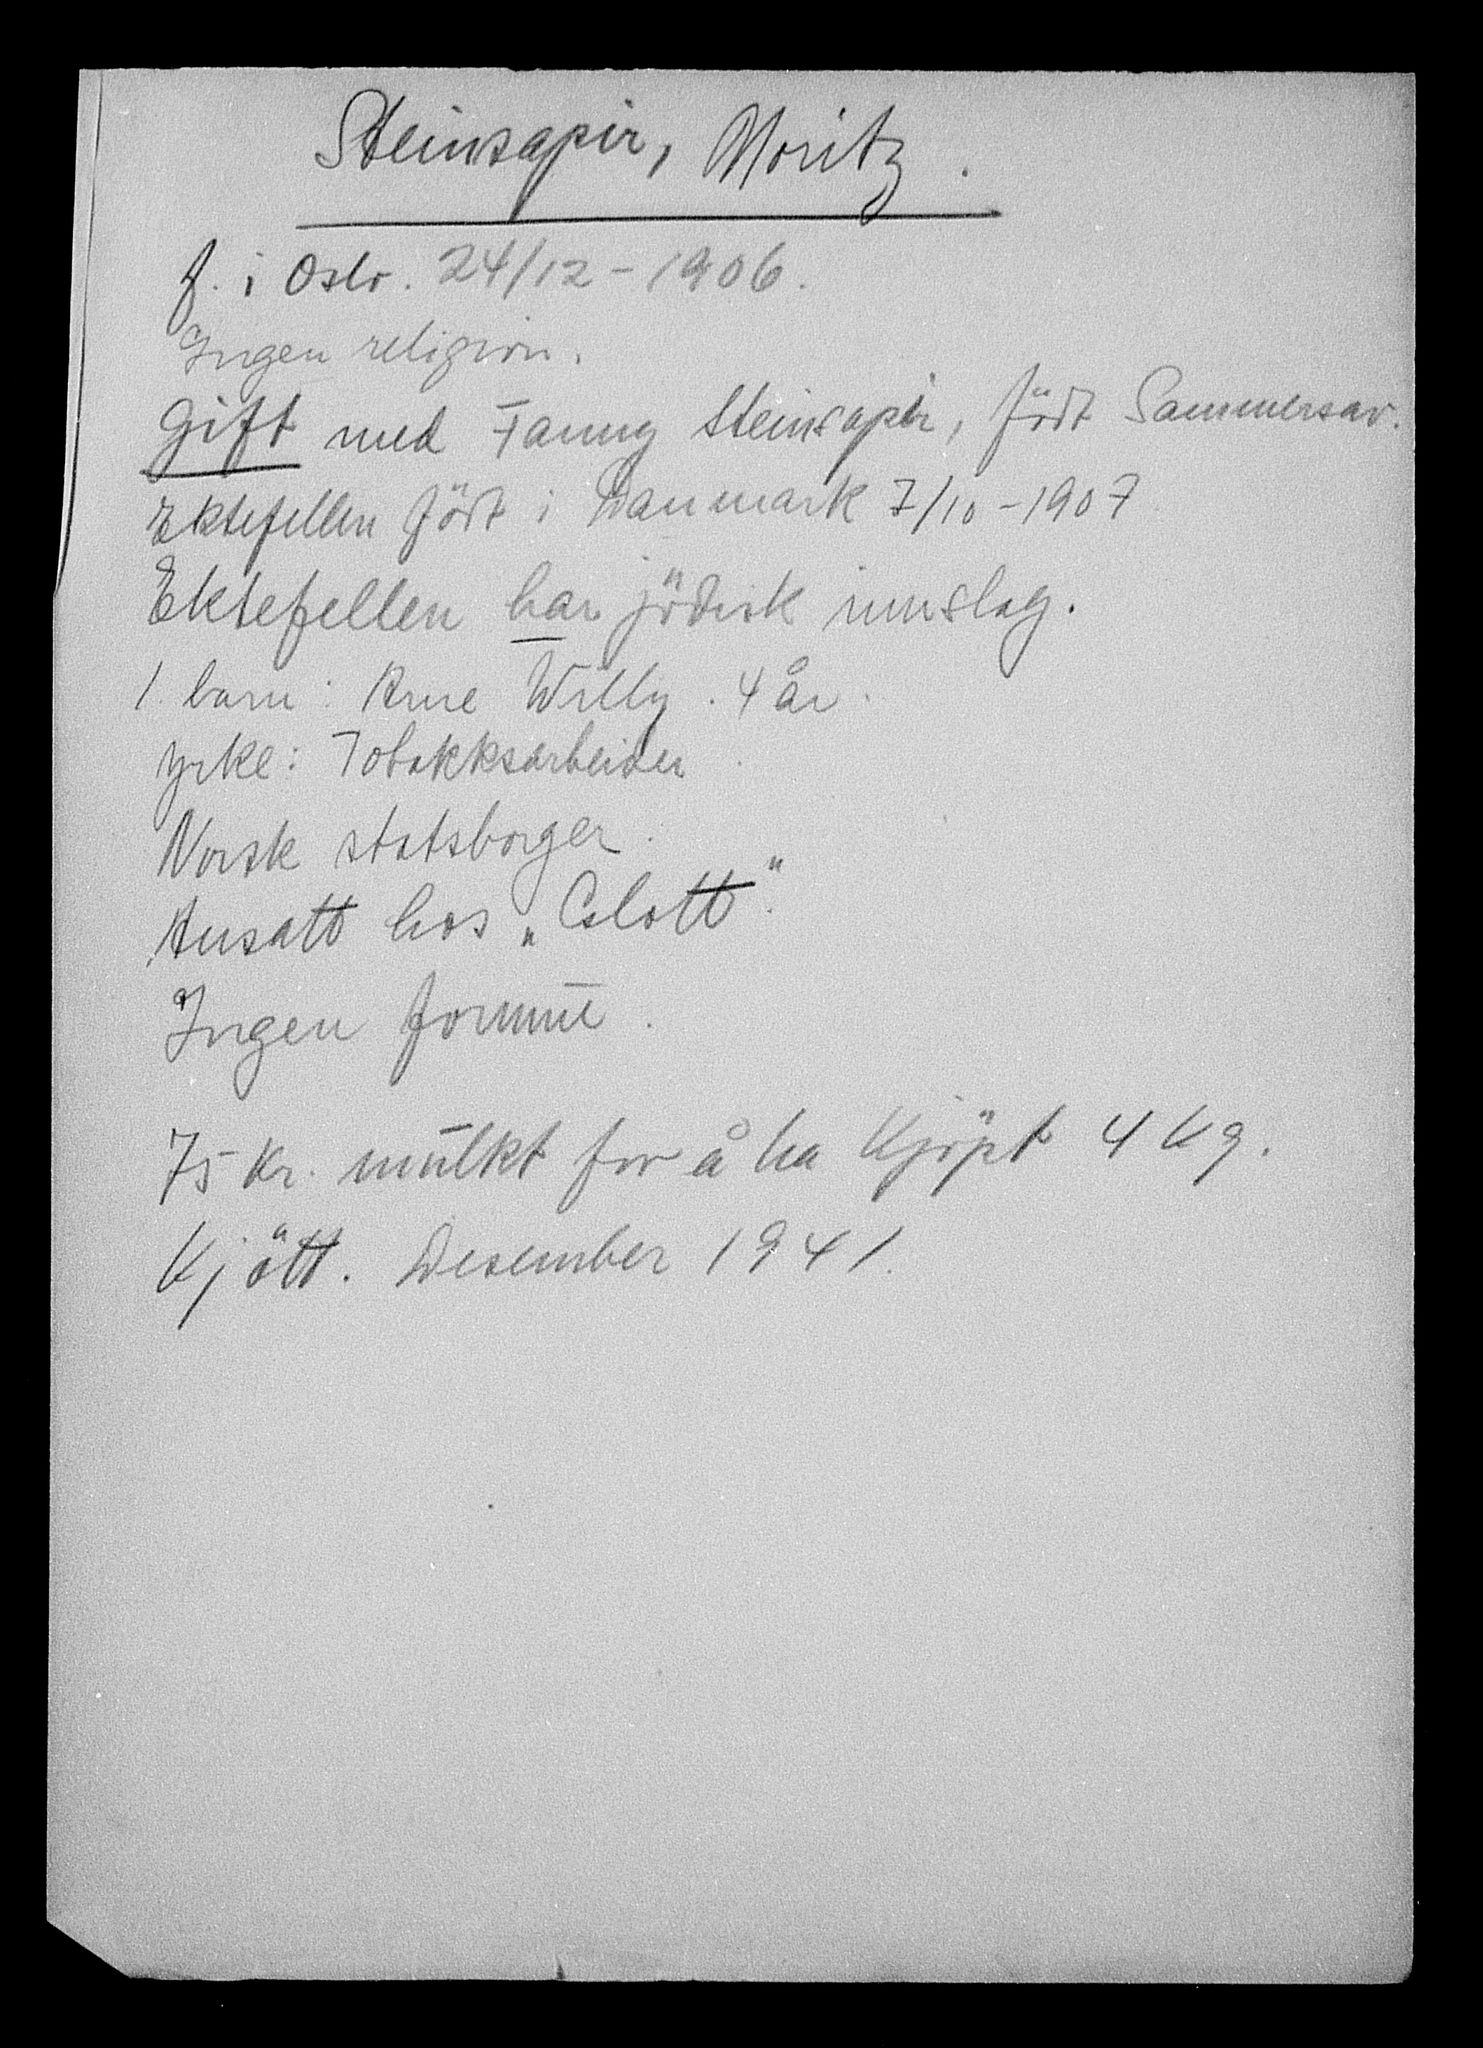 Steinsapir, Moritz.
f. i Oslo. 24/12-1906.
Ingen religion.
Gift med Fanny Steinsapir, födt Sammersav.
Ektefellen födt i Danmark 7/10-1907
Ektefellen har jödisk innslag.
1 barn: Arne Willy. 4 år.
Yrke: Tobakksarbeider.
Norsk statsborger.
Ansatt hos „Colott".
Ingen formue.
75 kr. mulkt for å ha kjöpt 4 kg.
Kjött. Desember 1941.